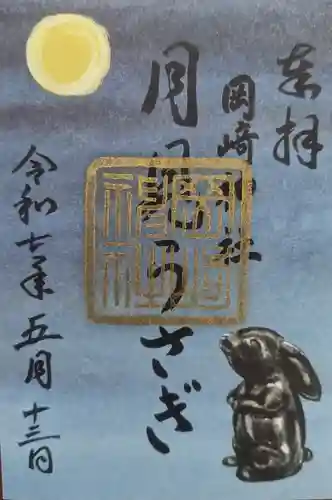 奉拝
岡崎神社
月見うさぎ
令和七年五月十三日